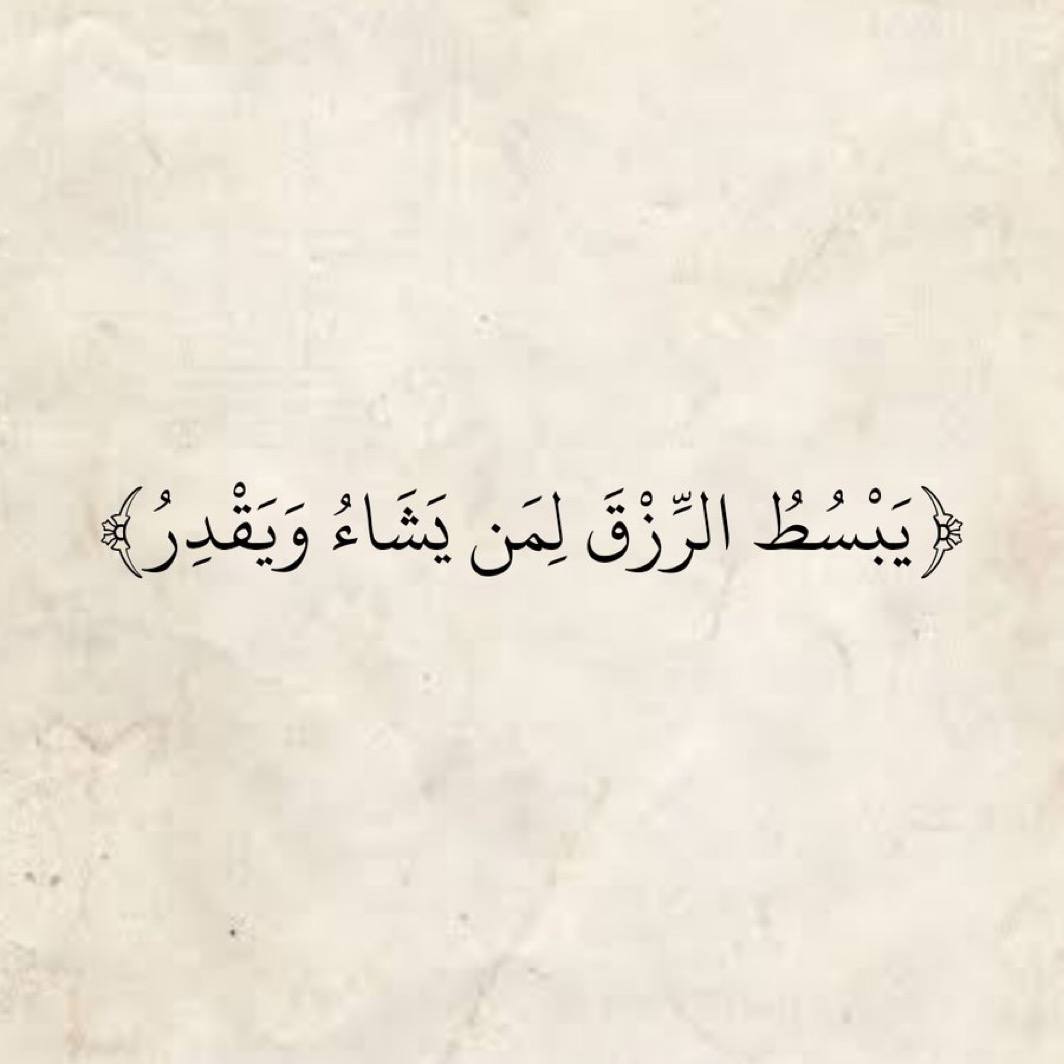 ﴿يَبْسُطُ الرِّزْقَ لِمَن يَشَاءُ وَيَقْدِرُ﴾